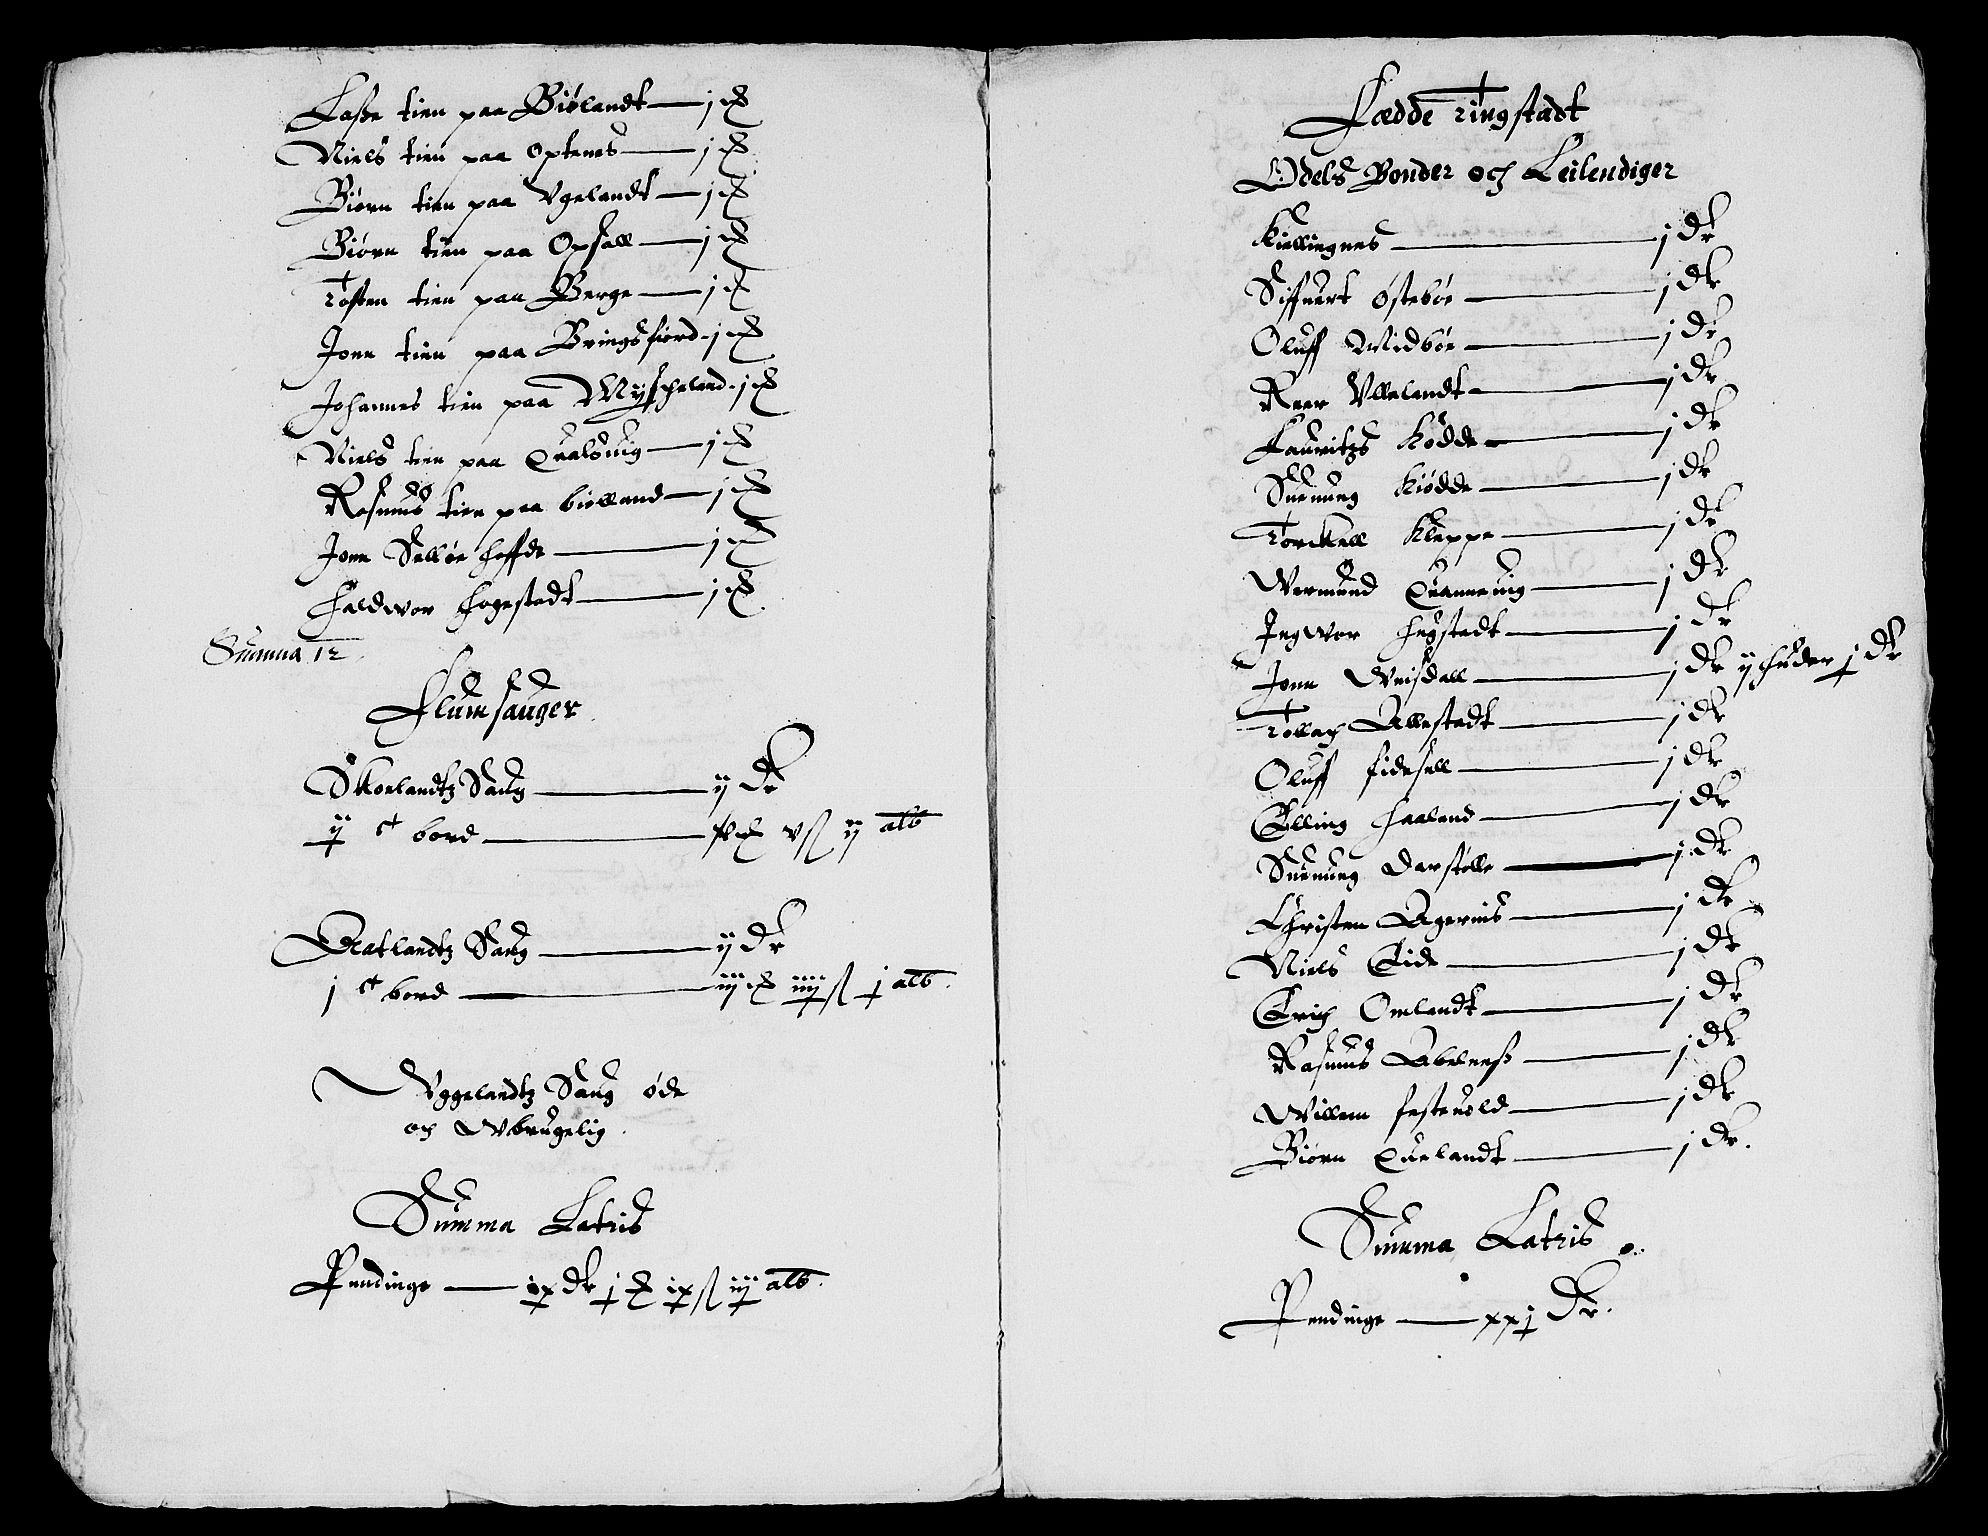 Laße tien paa Biølandt — j ℥
Niels tien paa Optenes — j ℥
Biørn tien paa Vgelandt — j ℥
Biørn tien paa Opsall — j ℥
Tosten tien paa Berge — j ℥
Jonn tien paa Bringsfiord — j ℥
Johannes tien paa Mysscheland — j ℥
Niels tien paa Qualsuig — j ℥
Rasmus tien paa bielland — j ℥
Jonn Selløe hoffde — j ℥
Haldwor Hogestadt — j ℥
Summa 12
Flumsauger
Skorlandtz Saug — ij dr
ij c bord — v ß ij alb
Natlandtz Saug — ij dr
j c bord — iij ℥ iiij ß j alb
Vggelandtz Saug øde
och Wbrugelig
Summa Latris
Pendinge — ix dr j ℥ ix ß iij alb
Fædde ringstadt
Odels Bonder och Leilendiger
Kiellingnes — j dr
Siffuert Østebøe — j dr
Oluff Midbøe — j dr
Reer Vllelandt — j dr
Lauritzs Kødde — j dr
Suenung Kiødde — j dr
Torckell Kleppe — j dr
Wermund Quanneuig — j dr
Ingwor Hugstadt — j dr
Jonn Weisdall — j dr ij huder j dr
Tollach Allestadt — j dr
Oluff fidesell — j dr
Elling Haaland — j dr
Suenung Darstølle — j dr
Christen Agerius — j dr
Niels Eide — j dr
Erich Omlandt — j dr
Rasmus Abelneß — j dr
Willem festeuold — j dr
Biørn Quelandt — j dr
Summa Latris
Pendinge — xxj dr